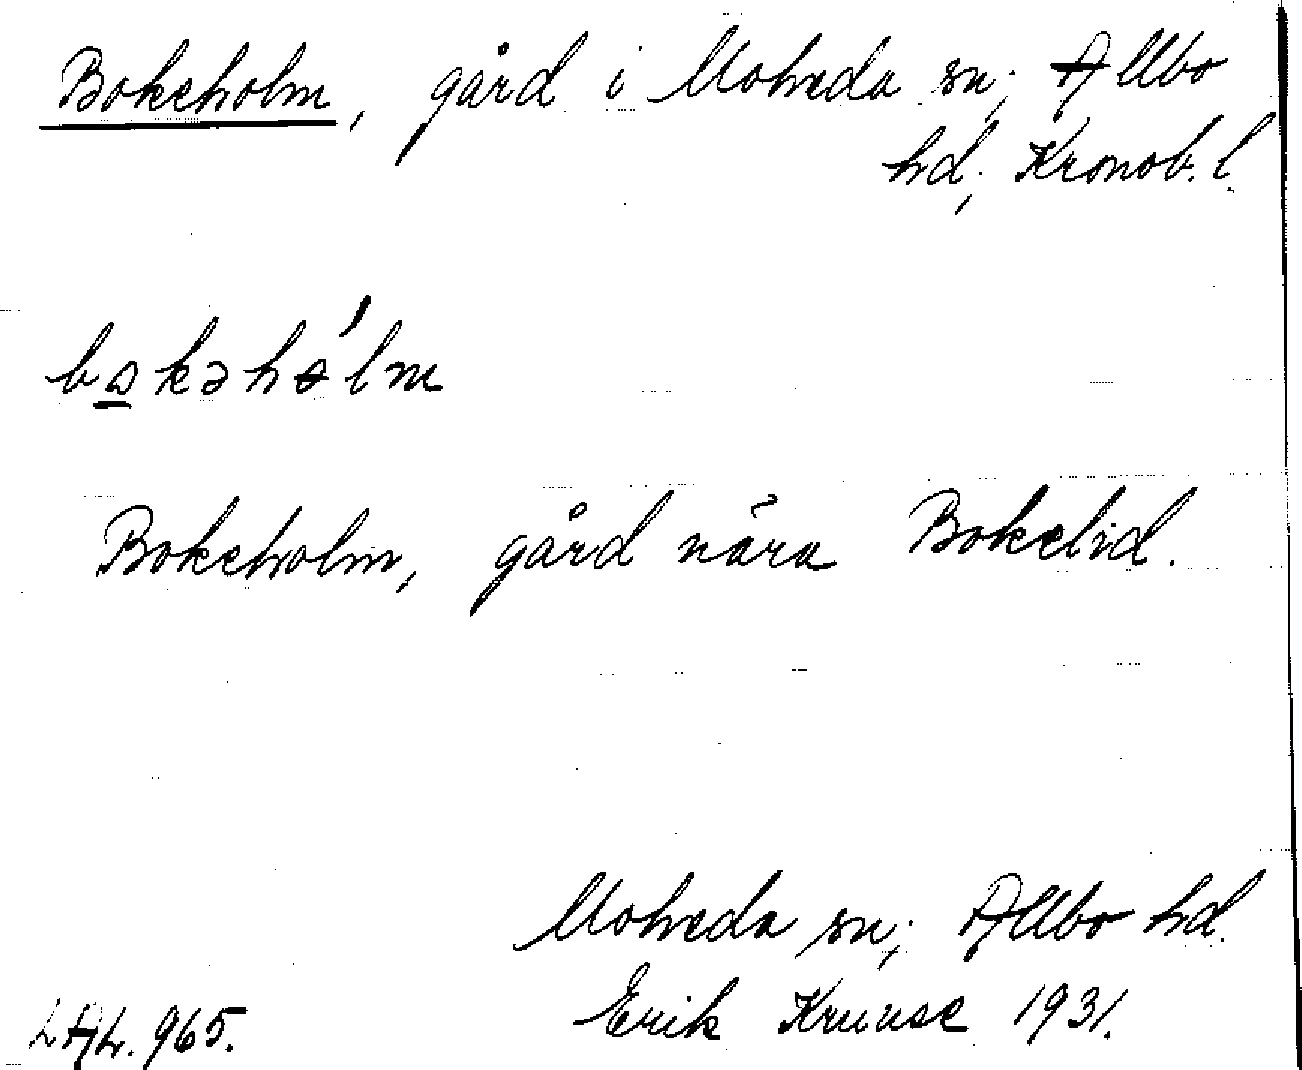 Bokeholm, gård i Moheda sn; Allbo
hd; Kronob. l.
bɷkəhɵ́lm
Bokeholm, gård nära Bokelid.
Moheda sn; Allbo hd.
Erik Kruuse 1931.
LAL. 965.